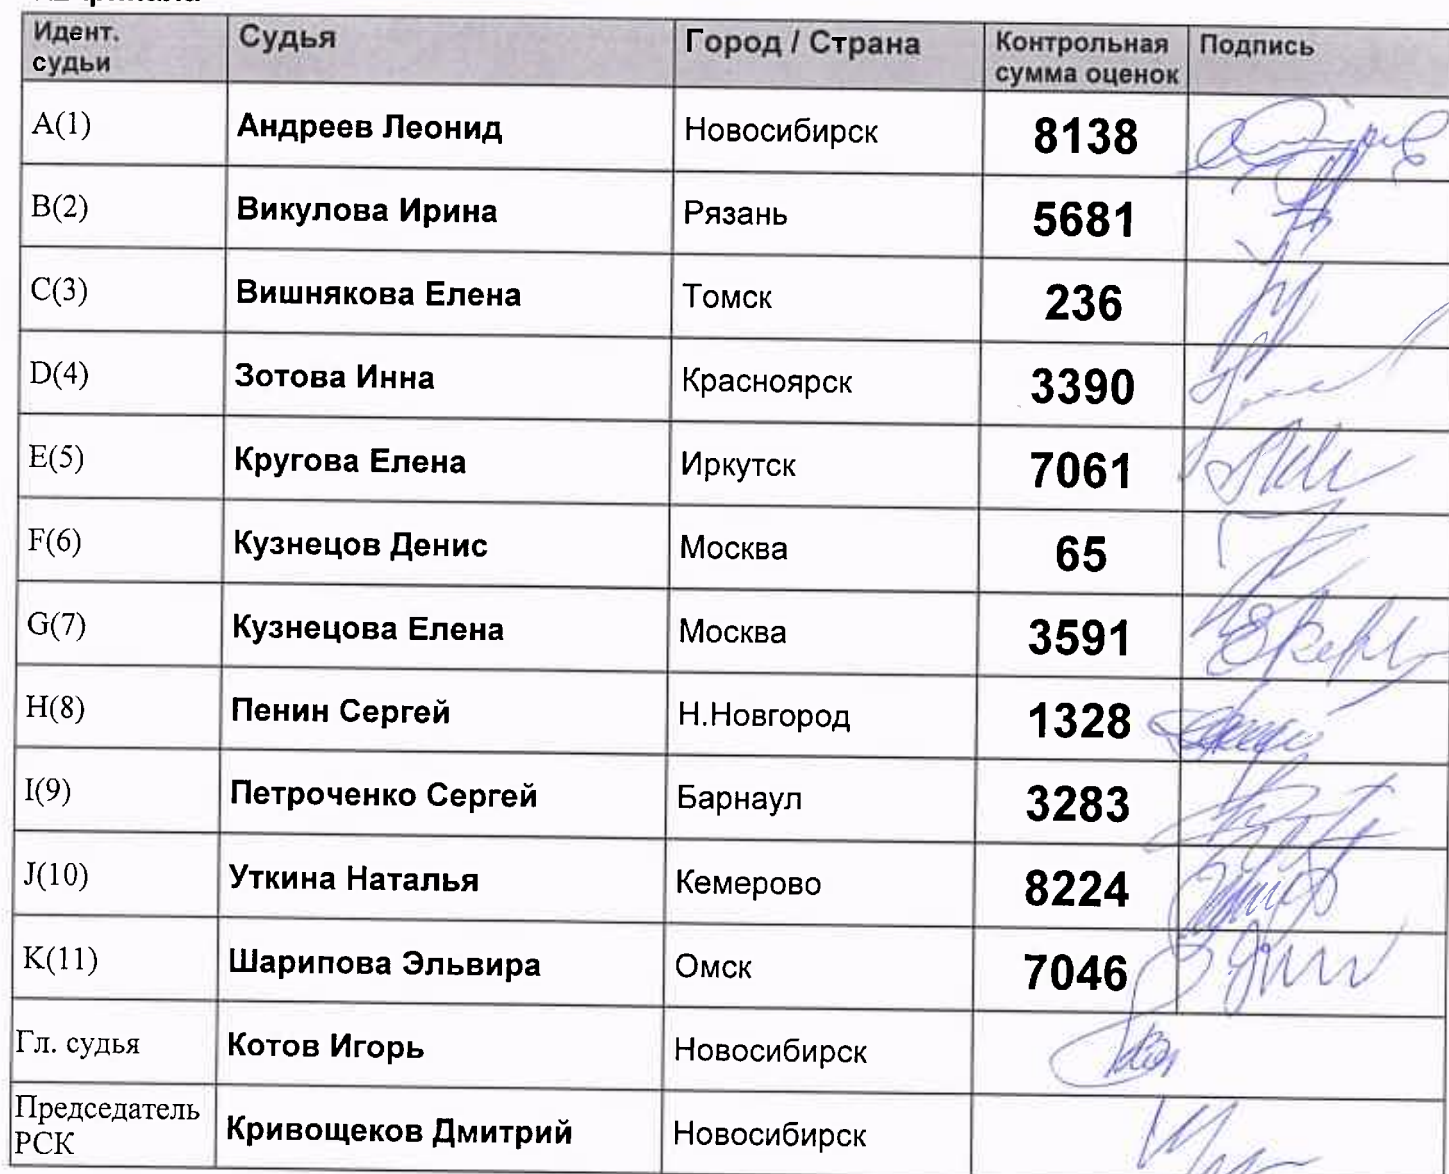 Идент. судьи Судья Город / Страна Контрольная сумма оценок Подпись
A(1) Андреев Леонид Новосибирск 8138
B(2) Викулова Ирина Рязань 5681
C(3) Вишнякова Елена Томск 236
D(4) Зотова Инна Красноярск 3390
E(5) Кругова Елена Иркутск 7061
F(6) Кузнецов Денис Москва 65
G(7) Кузнецова Елена Москва 3591
H(8) Пенин Сергей Н.Новгород 1328
I(9) Петроченко Сергей Барнаул 3283
J(10) Уткина Наталья Кемерово 8224
K(11) Шарипова Эльвира Омск 7046
Гл. судья Котов Игорь Новосибирск
Председатель РСК Кривощеков Дмитрий Новосибирск